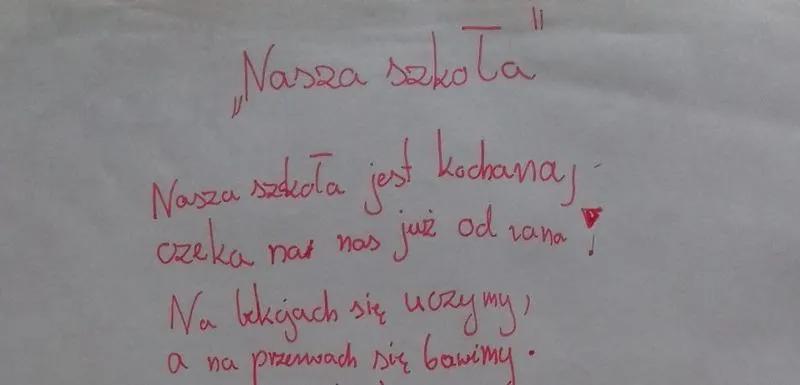 „Nasza szkoła"
Nasza szkoła jest kochana,
czeka na nas już od rana!
Na lekcjach się uczymy,
a na przerwach się bawimy.